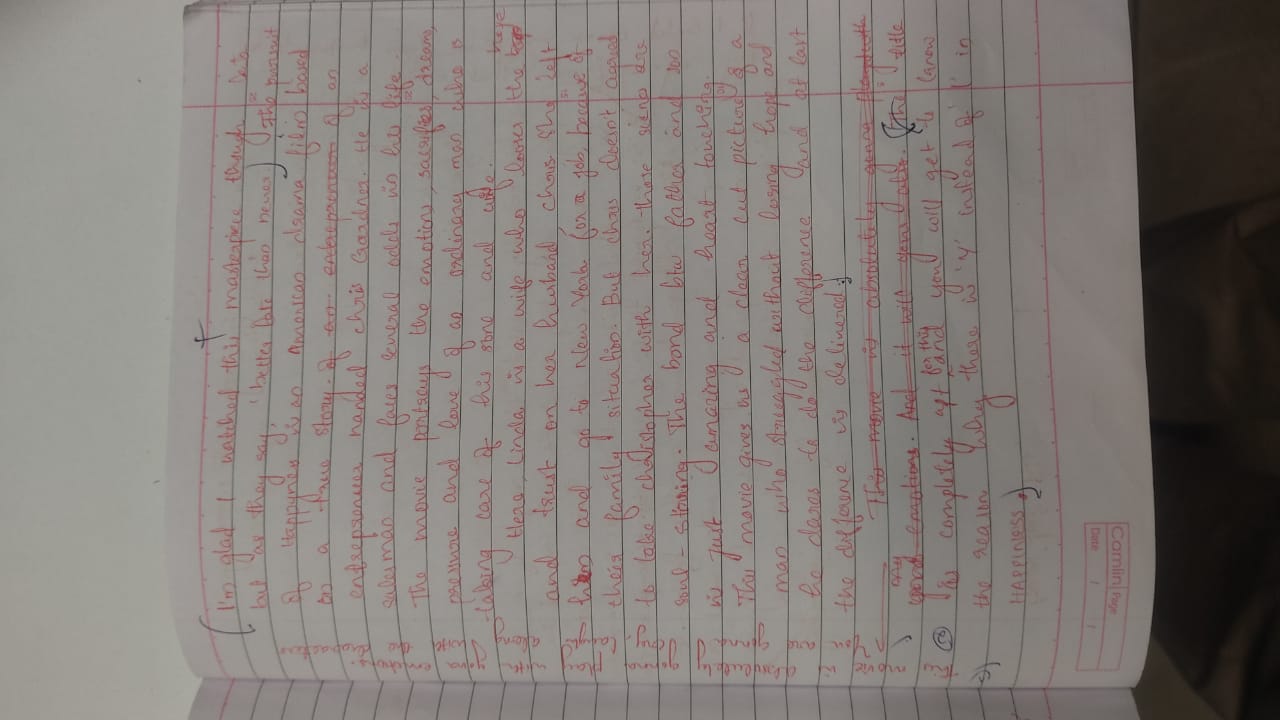 I'm glad I watched this masterpiece through late
but as they say, 'better late than never'. The pursuit
of Happyness is an American drama film based
on a true story of an
entrepreneur named Chris Gardner. He is a
salesman and faces several odds in his life
The movie portrays the emotion, sacrifies, dreams,
pressure and love of an ordinary man who is
taking care of his sone and wife.
Here, Linda is a wife who looses the hope
and trust on her husband chris. She left
him and go to New York for a job, because of
their family situation. But chris doesn't agreed
to take christopher with her. those scenes are
soul-storing. The bond btw father and son
is just amazing and heart touching.
This movie gives us a clean cut picture of a
man who struggled without losing hope and
he dares to do the difference and at last
the difference is delivered.
This movie is absolutely going
and emotions. And it will The title
is completely apt for this and you will get to know
the reason why there is 'y' instead of 'i' in
HAPPINESS)
movie
absolutely
gonna
play
with
along
your
emotions.
are
characters
Camlin Page
Date / /